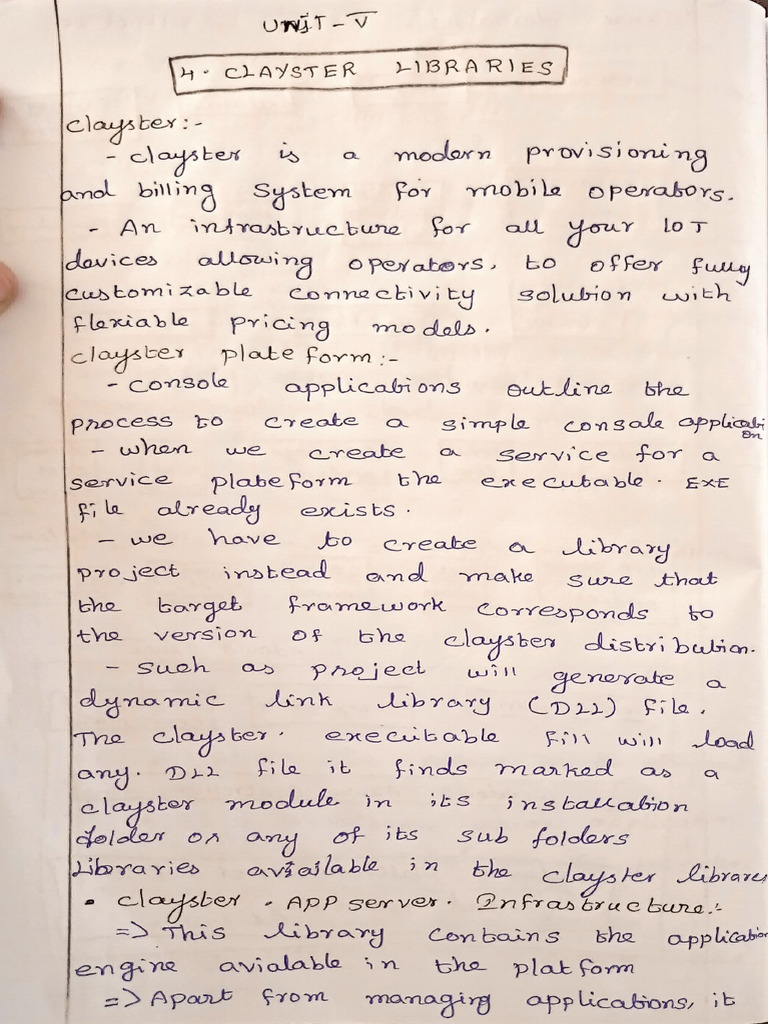 UNIT-V
4. CLAYSTER LIBRARIES
Clayster:-
- clayster is a modern provisioning
and billing system for mobile operators.
- An infrastructure for all your IOT
devices allowing operators, to offer fully
customizable connectivity solution with
flexiable pricing models.
Clayster plateform:-
- console applications outline the
process to create a simple console application
- when we create a service for a
service plateform the executable. EXE
file already exists.
- we have to create a library
project instead and make sure that
the target framework corresponds to
the version of the clayster distribution.
- Such as project will generate a
dynamic link library (DLL) file.
The clayster. executable fill will load
any. DLL file it finds marked as a
clayster module in its installation
folder or any of its sub folders
Libraries available in the clayster libraries
• Clayster . APP server. Infrastructure:-
=> This library contains the application
engine avialable in the platform
=> Apart from managing applications, it